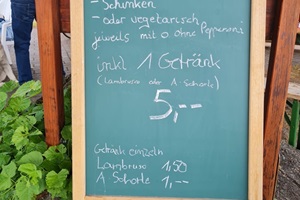 - Schinken
- oder vegetarisch
jeweils mit o ohne Pepperoni
inkl 1 Getränk
(Lambrusco oder A Schorle)
5,--
Getränk einzeln
Lambrusco 1,50
A Schorle 1,--